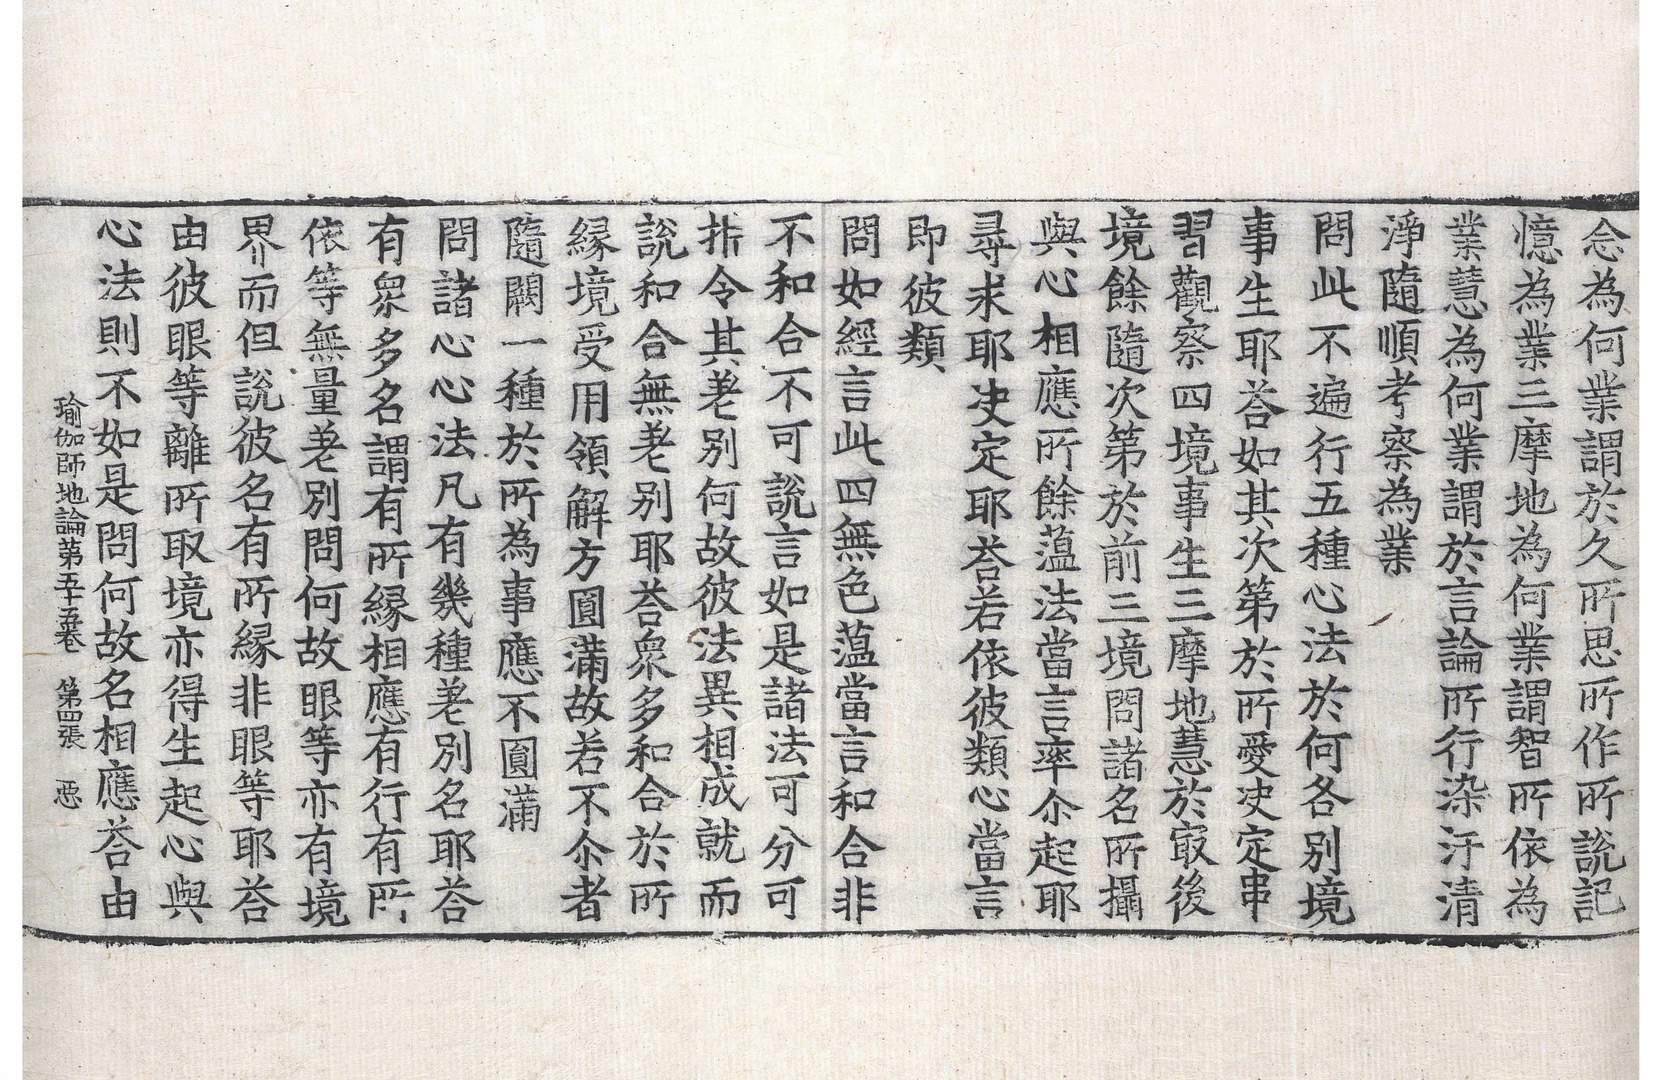 念為何業謂於久所思所作所說記
憶為業三摩地為何業謂智所依為
業慧為何業謂於言論所行染汙清
淨隨順考察為業
問此不遍行五種心法於何各別境
事生耶荅如其次第於所愛决定串
習觀察四境事生三摩地慧於㝡後
境餘隨次第於前三境問諸名所攝
與心相應所餘薀法當言率尒起耶
尋求耶决定耶荅若依彼類心當言
即彼類
問如經言此四無色薀當言和合非
不和合不可說言如是諸法可分可
析令其差別何故彼法異相成就而
說和合無差別耶荅衆多和合於所
緣境受用領解方圓滿故若不尒者
隨闕一種於所為事應不圓滿
問諸心心法凡有幾種差別名耶荅
有衆多名謂有所緣相應有行有所
依等無量差別問何故眼等亦有境
界而但說彼名有所緣非眼等耶荅
由彼眼等離所取境亦得生起心與
心法則不如是問何故名相應荅由
瑜伽師地論第五十五卷 第四張 惡